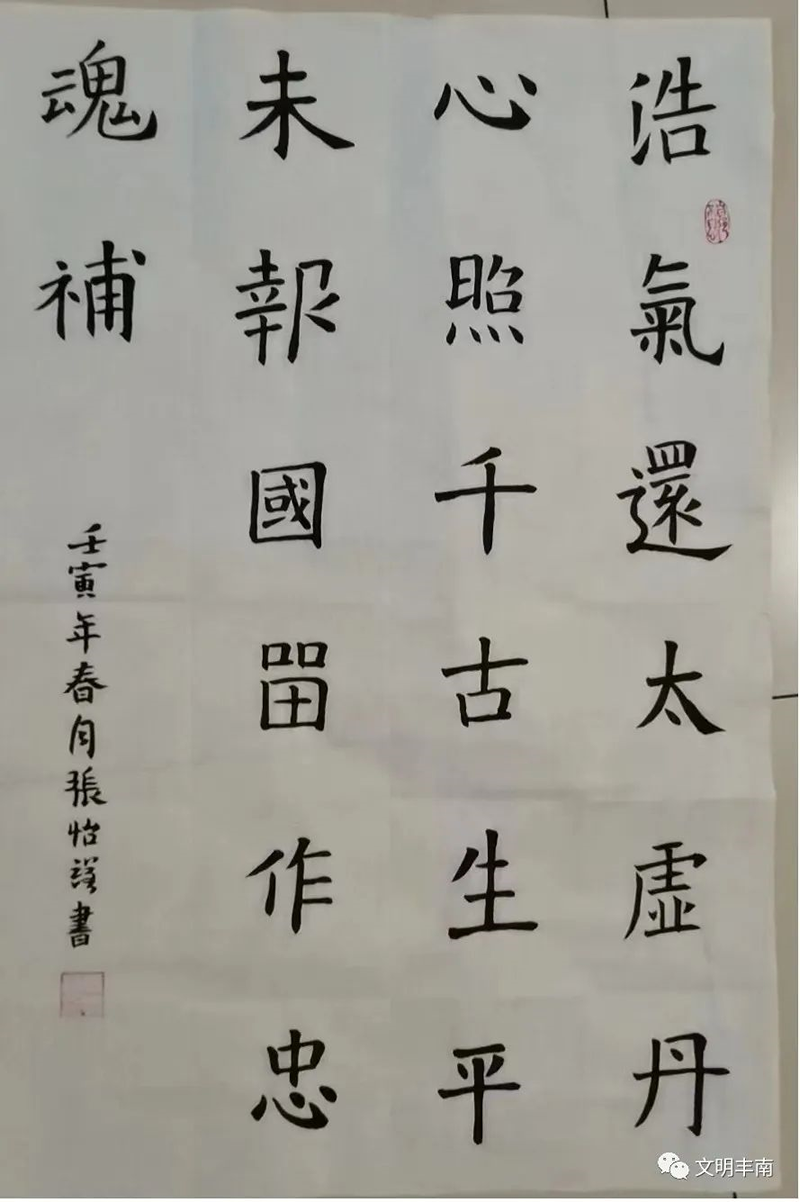 浩氣還太虛丹
心照千古生平
未報國留作忠
魂補
壬寅年春月張怡
書
文明丰南